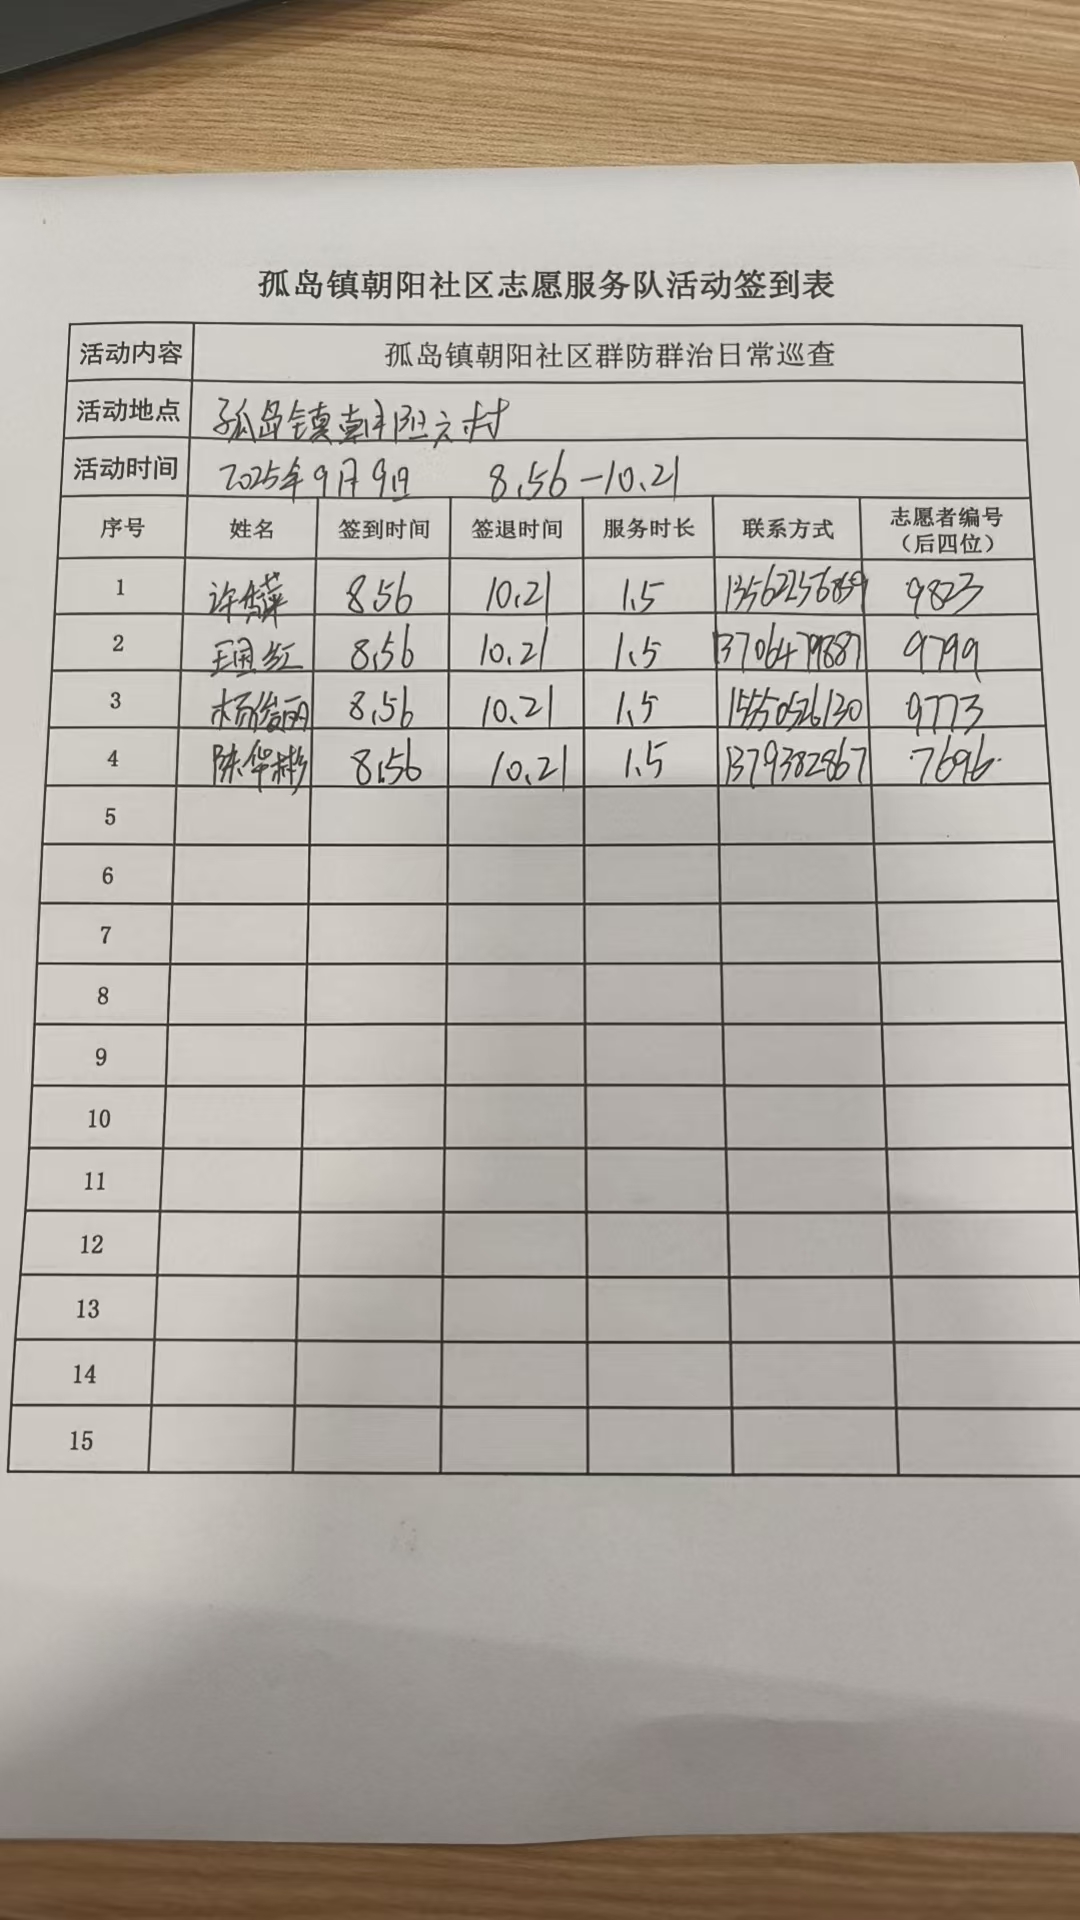 孤岛镇朝阳社区志愿服务队活动签到表
活动内容 孤岛镇朝阳社区群防群治日常巡查
活动地点 孤岛镇朝阳六村
活动时间 2025年9月9日 8.56-10.21
序号 姓名 签到时间 签退时间 服务时长 联系方式 志愿者编号（后四位）
1 许 8.56 10.21 1.5 13562256869 9823
2 王国红 8.56 10.21 1.5 13706479887 9799
3 杨俊丽 8.56 10.21 1.5 15550526130 9773
4 陈华彬 8.56 10.21 1.5 1379382867 7696
5
6
7
8
9
10
11
12
13
14
15